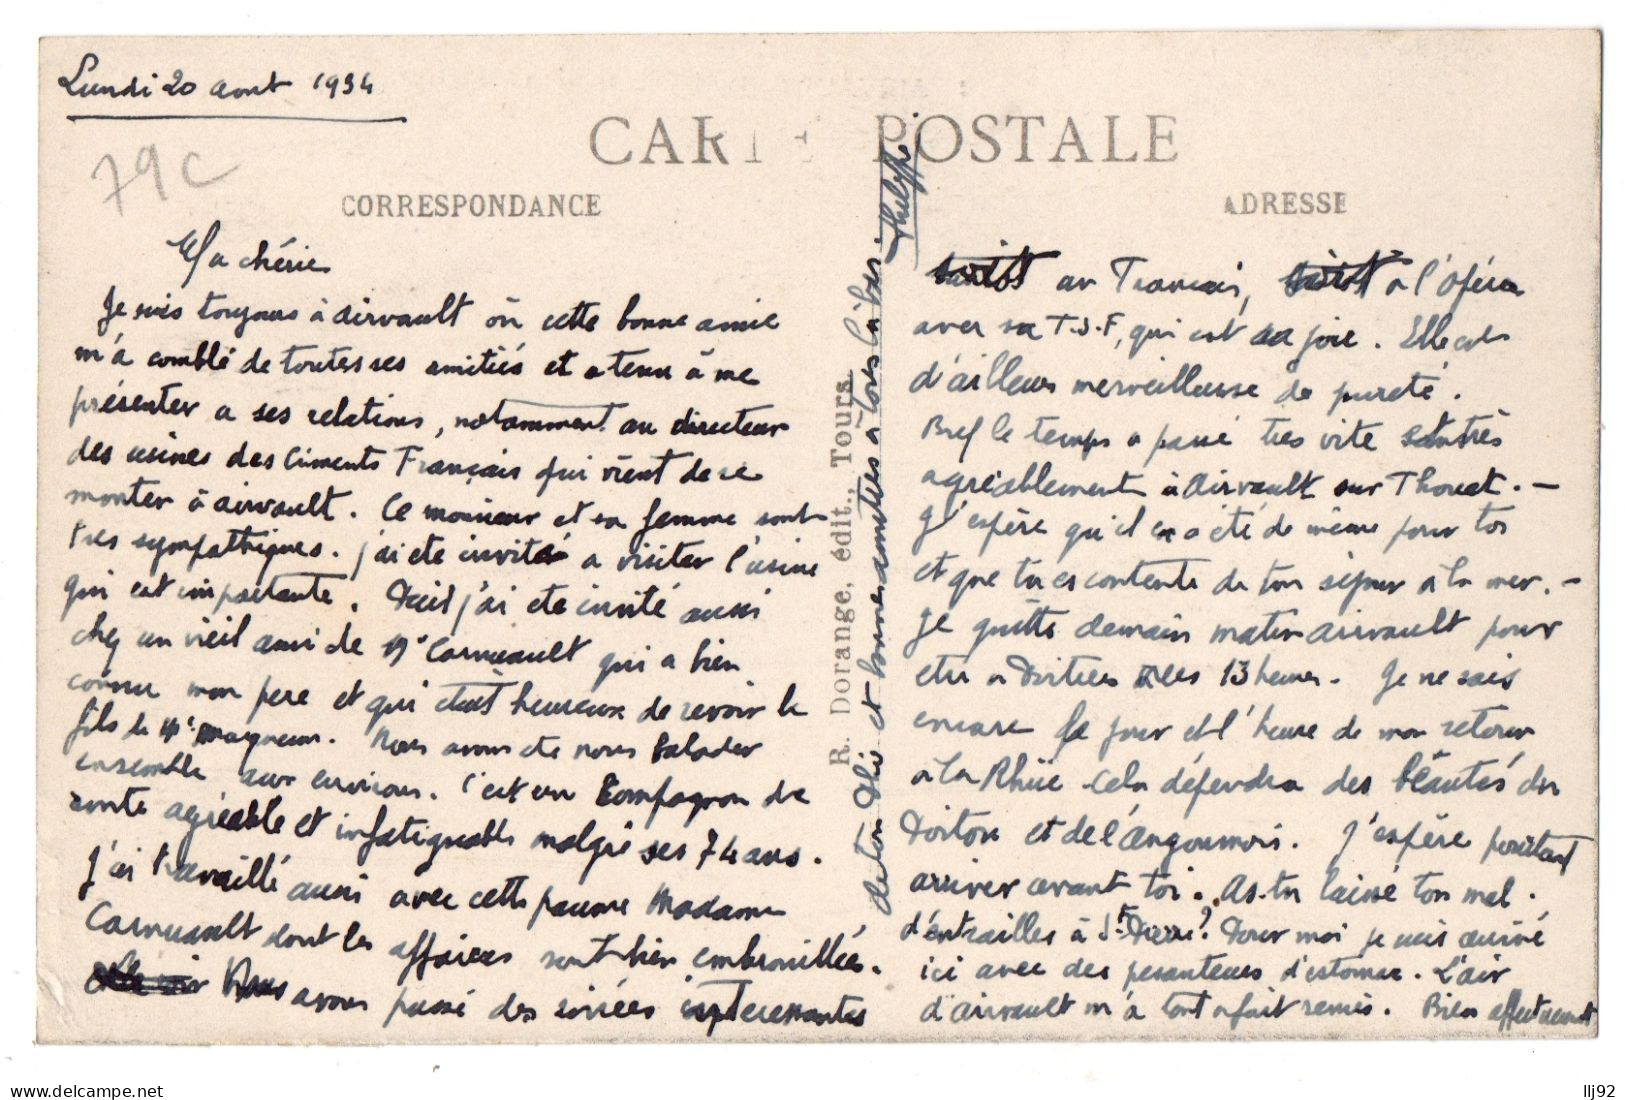 Lundi 20 aout 1934
79c
CARTE POSTALE
CORRESPONDANCE
ADRESSE
Ma chérie
Je suis toujours à Airvault où cette bonne amie
m'a comblé de toutes ses amitiés et a tenu à me
présenter a ses relations, notamment au directeur
des usines des Ciments Français qui vient de se
monter à Airvault. Ce monsieur et sa femme sont
tres sympathiques. J'ai ete invité a visiter l'usine
qui est importante. Puis j'ai ete invité aussi
chez un vieil ami de Me Carnuault qui a bien
connu mon pere et qui était heureux de revoir le
fils de Me. Nous avons ete nous balader
ensemble aux environs. C'est un compagnon de
route agréable et infatiguable malgré ses 74 ans.
J'ai travaillé aussi avec cette pauvre Madame
Carnuault dont les affaires sont bien embrouillées.
Nous avons passé des soirées interessantes
au Francais, à l'Opéra
avec sa T.S.F, qui est sa joie. Elle est
d'ailleurs merveilleuse de pureté.
Bref le temps a passé tres vite et très
agréablement à Airvault sur Thouet. -
J'espère qu'il en a été de même pour toi
et que tu es contente de ton séjour à la mer. -
Je quitte demain matin Airvault pour
etre a Poitiers vers 13 heures. Je ne sais
encore le jour et l'heure de mon retour
à la cela dépendra des beautés du
Poitou et de l'Angoumois. J'espère pourtant
arriver avant toi. As-tu laissé ton mal
d'entrailles à St Pierre? Pour moi je suis arrivé
ici avec des pesanteurs d'estomac. L'air
d'Airvault m'a tout a fait remis. Bien affectueusement
de ton et bonnes amitiés à tous là bas.
Philippe
R. Dorange, édit., Tours
llj92